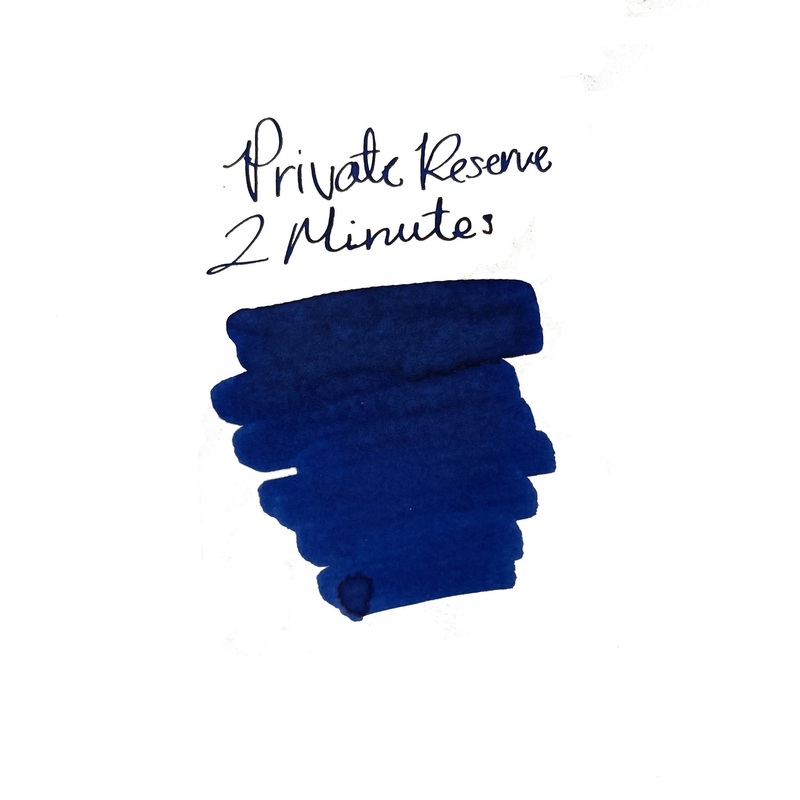 Private Reserve
2 Minutes